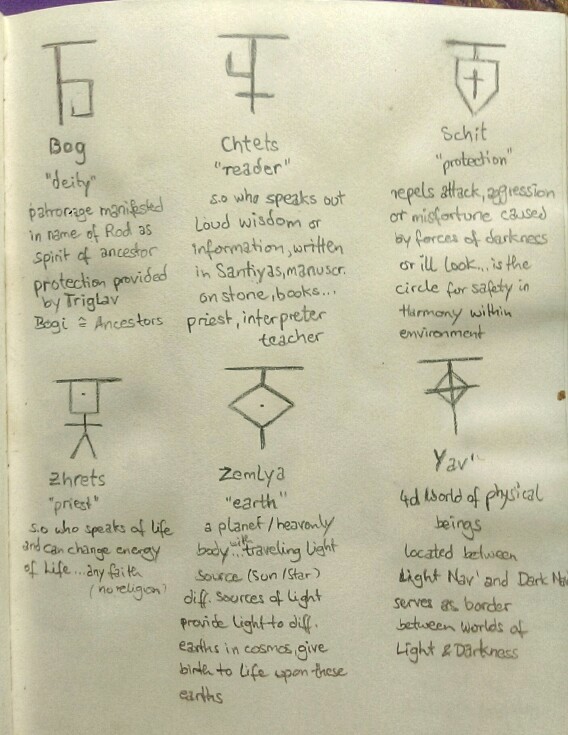 Bog
"deity"
patronage manifested
in name of Rod as
spirit of ancestor
protection provided
by Triglav
Bogi ≙ Ancestors
Chtets
"reader"
s.o who speaks out
Loud wisdom or
information, written
in Santiyas, manuscr.
on stone, books...
priest, interpreter
teacher
Schit
"protection"
repels attack, aggression
or misfortune caused
by forces of darkness
or ill look... is the
circle for safety in
Harmony within
environment
Zhrets
"priest"
s.o who speaks of life
and can change energy
of Life... any faith
(no religion)
Zemlya
"earth"
a planet / heavenly
body... with traveling Light
source (Sun / Star)
diff. sources of light
provide Light to diff.
earths in cosmos, give
birth to Life upon these
earths
Yav'
4d World of physical
beings
located between
Light Nav' and Dark Na
serves as border
between worlds of
Light & Darkness